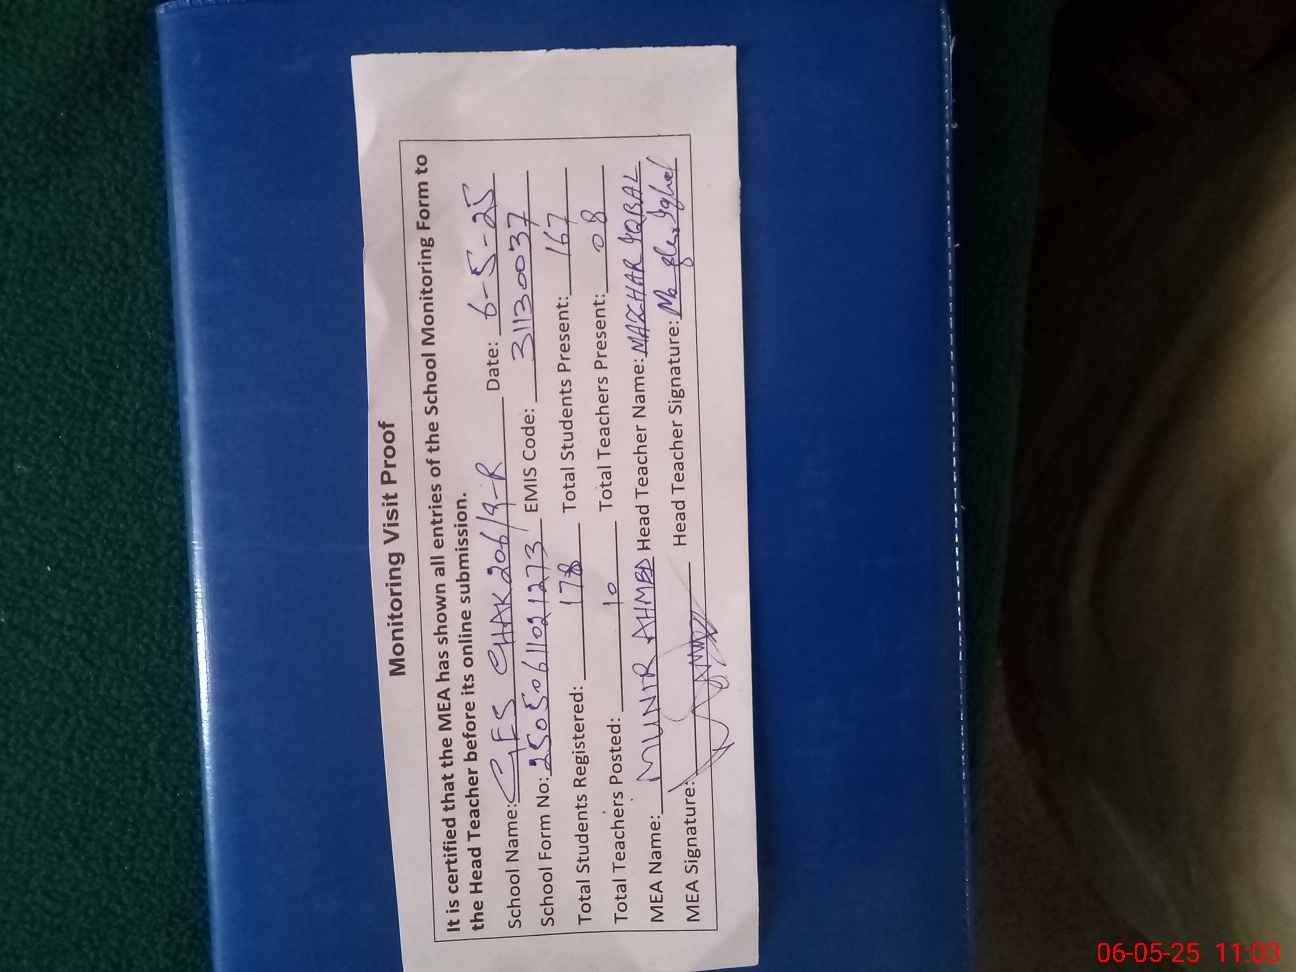 Monitoring Visit Proof
It is certified that the MEA has shown all entries of the School Monitoring Form to
the Head Teacher before its online submission.
School Name: GES CHAK 206/9-R Date: 6-5-25
School Form No: 2505061021273 EMIS Code: 31130037
Total Students Registered: 178 Total Students Present: 167
Total Teachers Posted: 10 Total Teachers Present: 08
MEA Name: MUNIR AHMED Head Teacher Name: MAZHAR IQBAL
MEA Signature: Head Teacher Signature: Iqbal
06-05-25 11:03